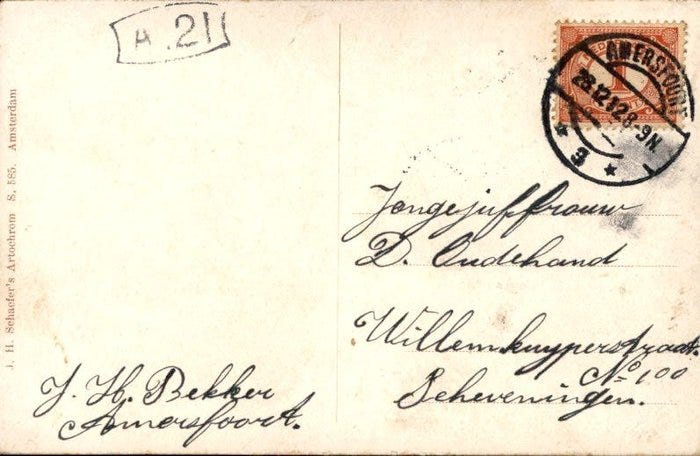 A.21
J. H. Schaefer's Artochrom S. 585. Amsterdam
AMERSFOORT
28.12.12 8-9N.
3
1
Jongejuffrouw
D. Oudehand
Willemkuyperstraat.
No 100
Scheveningen.
J. H. Bekker
Amersfoort.